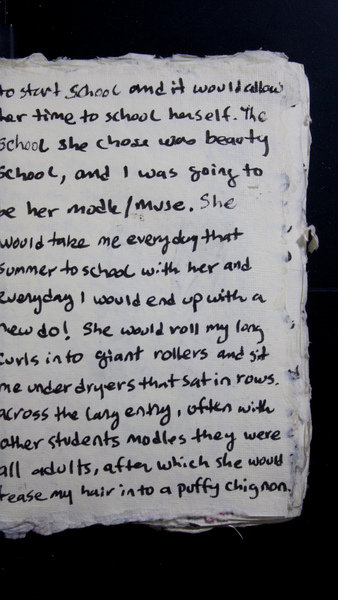 to start school and it would allow
her time to school herself. The
school she chose was beauty
school, and I was going to
be her modle/muse. She
would take me everyday that
summer to school with her and
everyday I would end up with a
new do! She would roll my long
curls into giant rollers and sit
me under dryers that sat in rows.
across the long entry, often with
other students modles they were
all adults, after which she would
tease my hair into a puffy chignon.